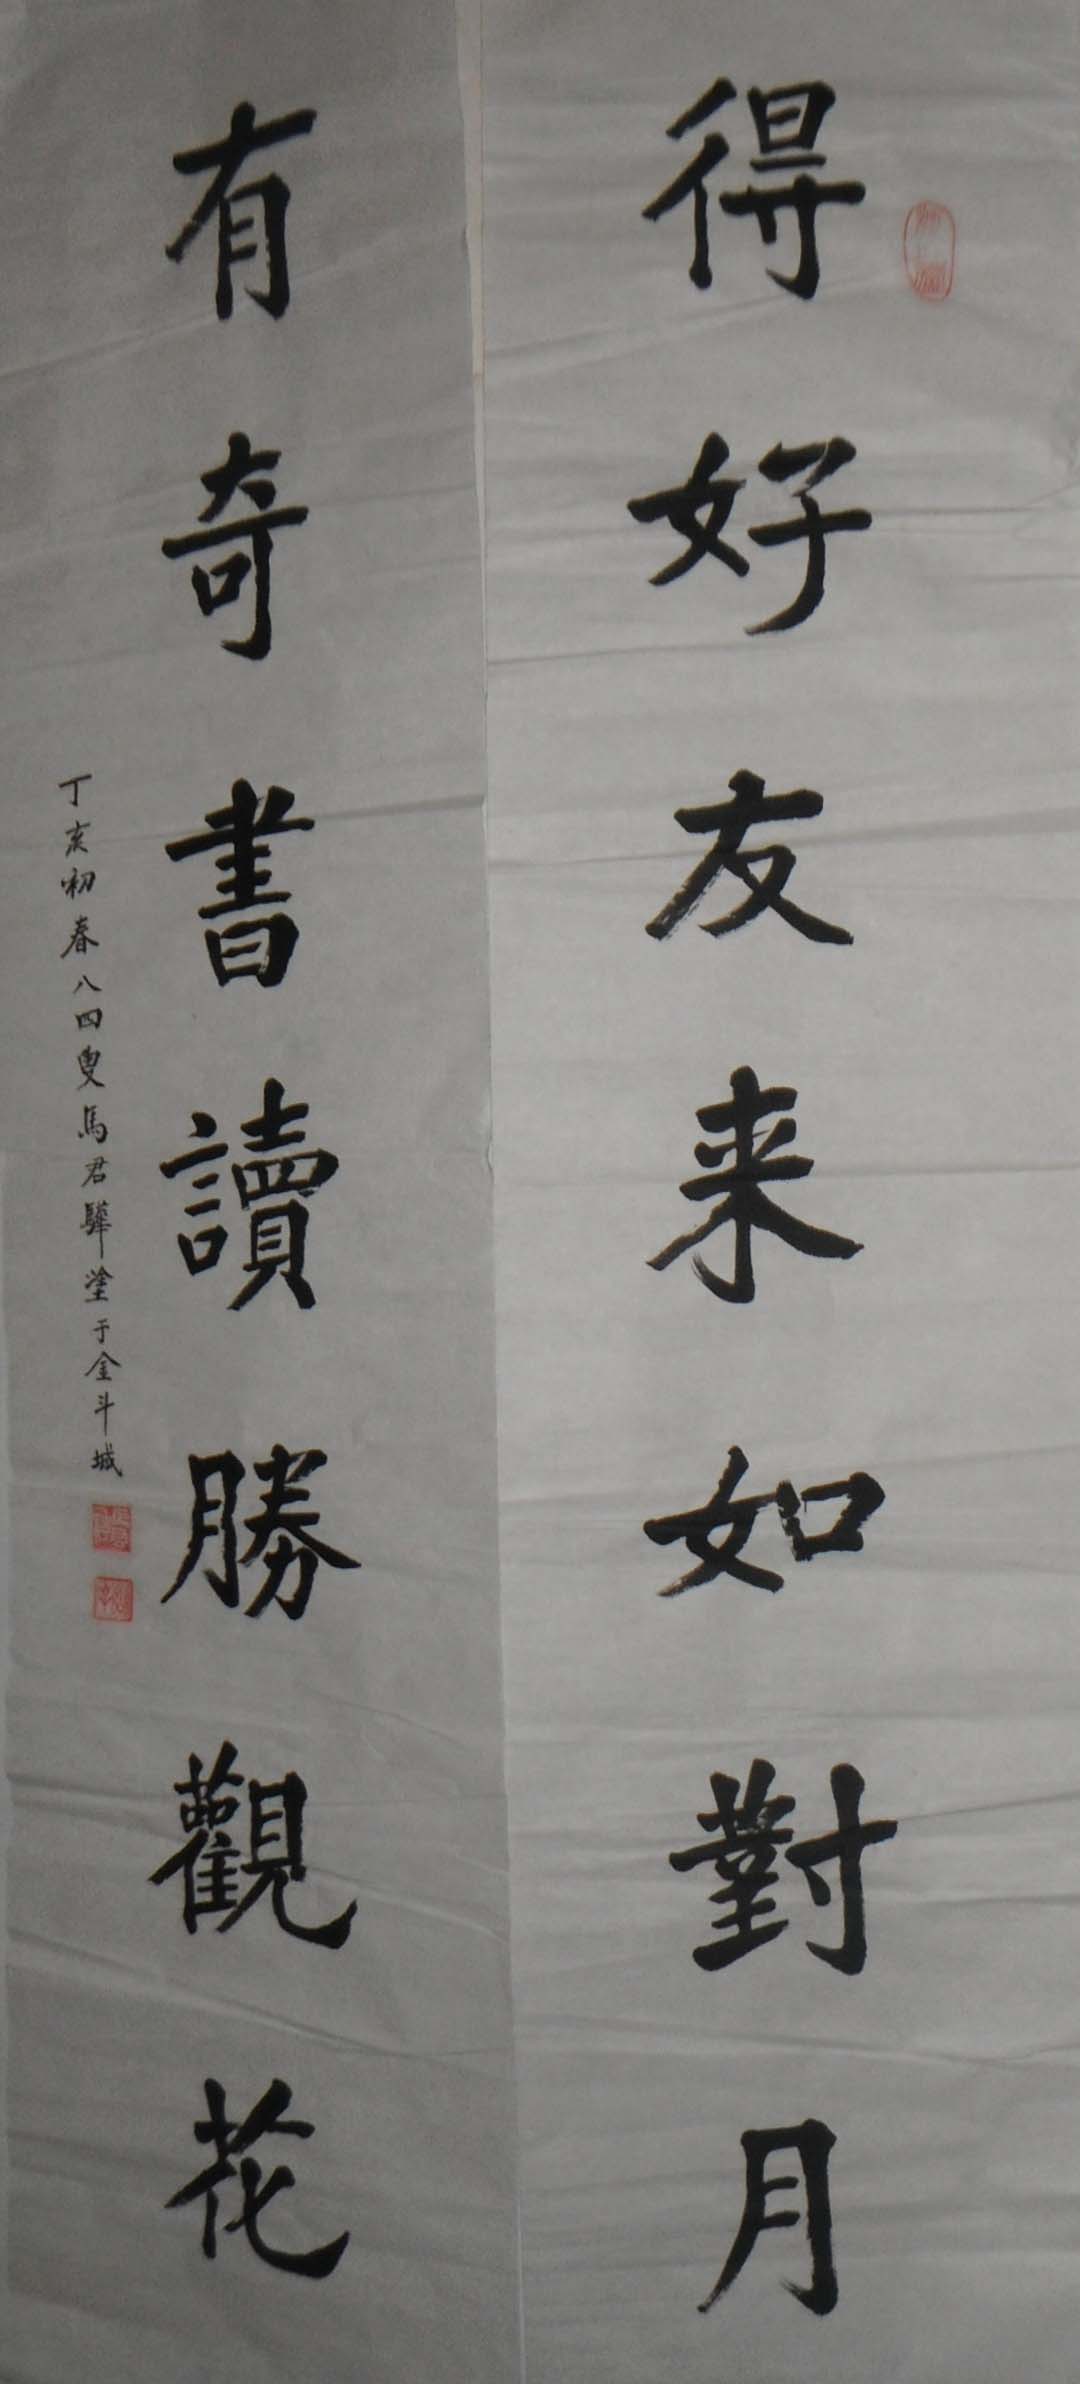 得好友来如對月
有奇書讀勝觀花
丁亥初春八四叟馬君驊塗于金斗城